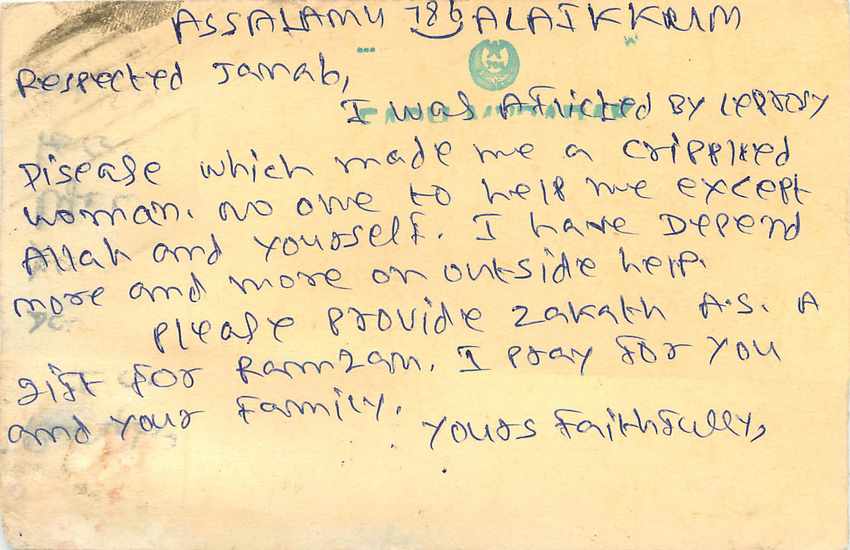 ASSALAMU 786 ALAIKKUM
Respected Janab,
I was Aflicted By leprosy
Disease which made me a cripplied
woman. no one to help me except
Allah and yourself. I have Depend
more and more on outside help.
please provide zakath A.S. A
gift for Ramzan. I pray for you
and your Family.
yours Faithfully,